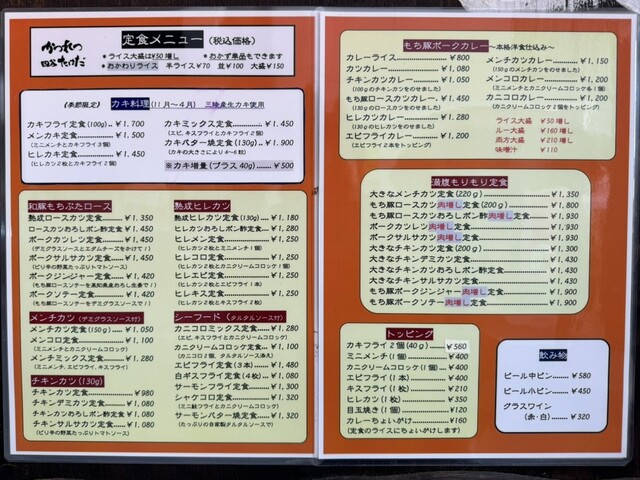 かつれつ
四谷たけだ
定食メニュー (税込価格)
*ライス大盛は¥50増し *おかず単品もできます
*おかわりライス 半ライス¥70 並¥100 大盛¥150
(季節限定) カキ料理(11月～4月) 三陸産生カキ使用
カキフライ定食(100g)‥¥1,700
メンカキ定食‥‥‥¥1,500
(ミニメンチとカキフライ3個)
ヒレカキ定食‥‥‥¥1,450
(ヒレカツ2枚とカキフライ2個)
カキミックス定食‥‥‥¥1,450
(エビ、キスフライとカキフライ2個)
カキバター焼定食(130g)‥¥1,900
(カキの大きさにより4～6粒)
※カキ増量(プラス40g)‥‥¥500
和豚もちぶたロース
熟成ロースカツ定食‥‥‥¥1,350
ロースカツおろしポン酢定食‥¥1,450
ポークカツレツ定食‥‥‥¥1,450
(デミグラスソースとエダムチーズをかけて!)
ポークサルサカツ定食‥‥‥¥1,450
(ピリ辛の野菜たっぷりトマトソース)
ポークジンジャー定食‥‥‥¥1,420
(もち豚ロースソテーを高知県産おろし生姜で!)
ポークソテー定食‥‥‥¥1,420
(もち豚ロースソテーをデミグラスソースで)
メンチカツ (デミグラスソース付)
メンチカツ定食(150g)‥‥¥1,050
メンコロ定食‥‥‥¥1,100
(ミニメンチとカニクリームコロッケ)
メンチミックス定食‥‥‥¥1,280
(メンチ、エビフライ、キスフライ)
チキンカツ (130g)
チキンカツ定食‥‥‥¥980
チキンデミカツ定食‥‥‥¥1,080
チキンカツおろしポン酢定食‥¥1,080
チキンサルサカツ定食‥‥‥¥1,080
(ピリ辛の野菜たっぷりトマトソース)
熟成ヒレカツ
熟成ヒレカツ定食(130g)‥‥¥1,180
ヒレカツおろしポン酢定食‥¥1,280
ヒレメン定食‥‥‥¥1,280
(ヒレカツ2枚とミニメンチ1個)
ヒレコロ定食‥‥‥¥1,280
(ヒレカツ2枚とカニクリームコロッケ1個)
ヒレエビ定食‥‥‥¥1,250
(ヒレカツ2枚とエビフライ1本)
ヒレキス定食‥‥‥¥1,250
(ヒレカツ2枚とキスフライ1枚)
シーフード (タルタルソース付)
カニコロミックス定食‥‥‥¥1,280
(エビ、キスフライとカニクリームコロッケ)
カニクリームコロッケ定食‥‥¥1,100
(カニコロ2個、タルタルソース添え)
エビフライ定食(3本)‥‥¥1,480
白ギスフライ定食(3枚)‥‥¥1,280
サーモンフライ定食‥‥‥¥1,300
シャケコロ定食‥‥‥¥1,320
(ミニ鮭フライとカニクリームコロッケ)
サーモンバター焼定食‥‥‥¥1,320
(たっぷりの自家製タルタルソースで)
もち豚ポークカレー～本格洋食仕込み～
カレーライス‥‥‥¥800
カツカレー‥‥‥¥1,080
チキンカツカレー‥‥‥¥1,050
(100gのチキンカツをのせました)
もち豚ロースカツカレー‥¥1,450
(130gのロースカツをのせました)
ヒレカツカレー‥‥‥¥1,280
(130gのヒレカツをのせました)
エビフライカレー‥‥‥¥1,280
(エビフライ2本をトッピング)
メンチカツカレー‥‥¥1,150
(150gのメンチカツをのせました)
メンコロカレー‥‥‥¥1,200
(ミニメンチとカニクリームコロッケ各1個)
カニコロカレー‥‥‥¥1,200
(カニクリームコロッケ2個をトッピング)
ライス大盛 ¥50増し
ルー大盛 ¥160増し
両方大盛 ¥210増し
味噌汁 ¥110
満腹もりもり定食
大きなメンチカツ定食(220g)‥‥¥1,350
もち豚ロースカツ肉増し定食(200g)‥‥¥1,800
もち豚ロースカツおろしポン酢肉増し定食‥¥1,930
ポークカツレツ肉増し定食‥‥‥¥1,930
ポークサルサカツ肉増し定食‥‥‥¥1,930
大きなチキンカツ定食(200g)‥‥‥¥1,300
大きなチキンデミカツ定食‥‥‥¥1,430
大きなチキンカツおろしポン酢定食‥‥¥1,430
大きなチキンサルサカツ定食‥‥‥¥1,430
もち豚ポークジンジャー肉増し定食‥‥¥1,900
もち豚ポークソテー肉増し定食‥‥‥¥1,900
トッピング
カキフライ2個(40g)‥‥¥560
ミニメンチ(1個)‥‥‥¥400
カニクリームコロッケ(1個)‥‥¥400
エビフライ(1本)‥‥‥¥400
キスフライ(1枚)‥‥‥¥210
ヒレカツ(1枚)‥‥‥¥350
目玉焼き(1個)‥‥‥¥120
カレーちょいがけ‥‥‥¥160
(定食のライスにちょいがけします)
飲み物
ビール中ビン‥‥‥¥580
ビール小ビン‥‥‥¥450
グラスワイン
(赤・白)‥‥‥¥320